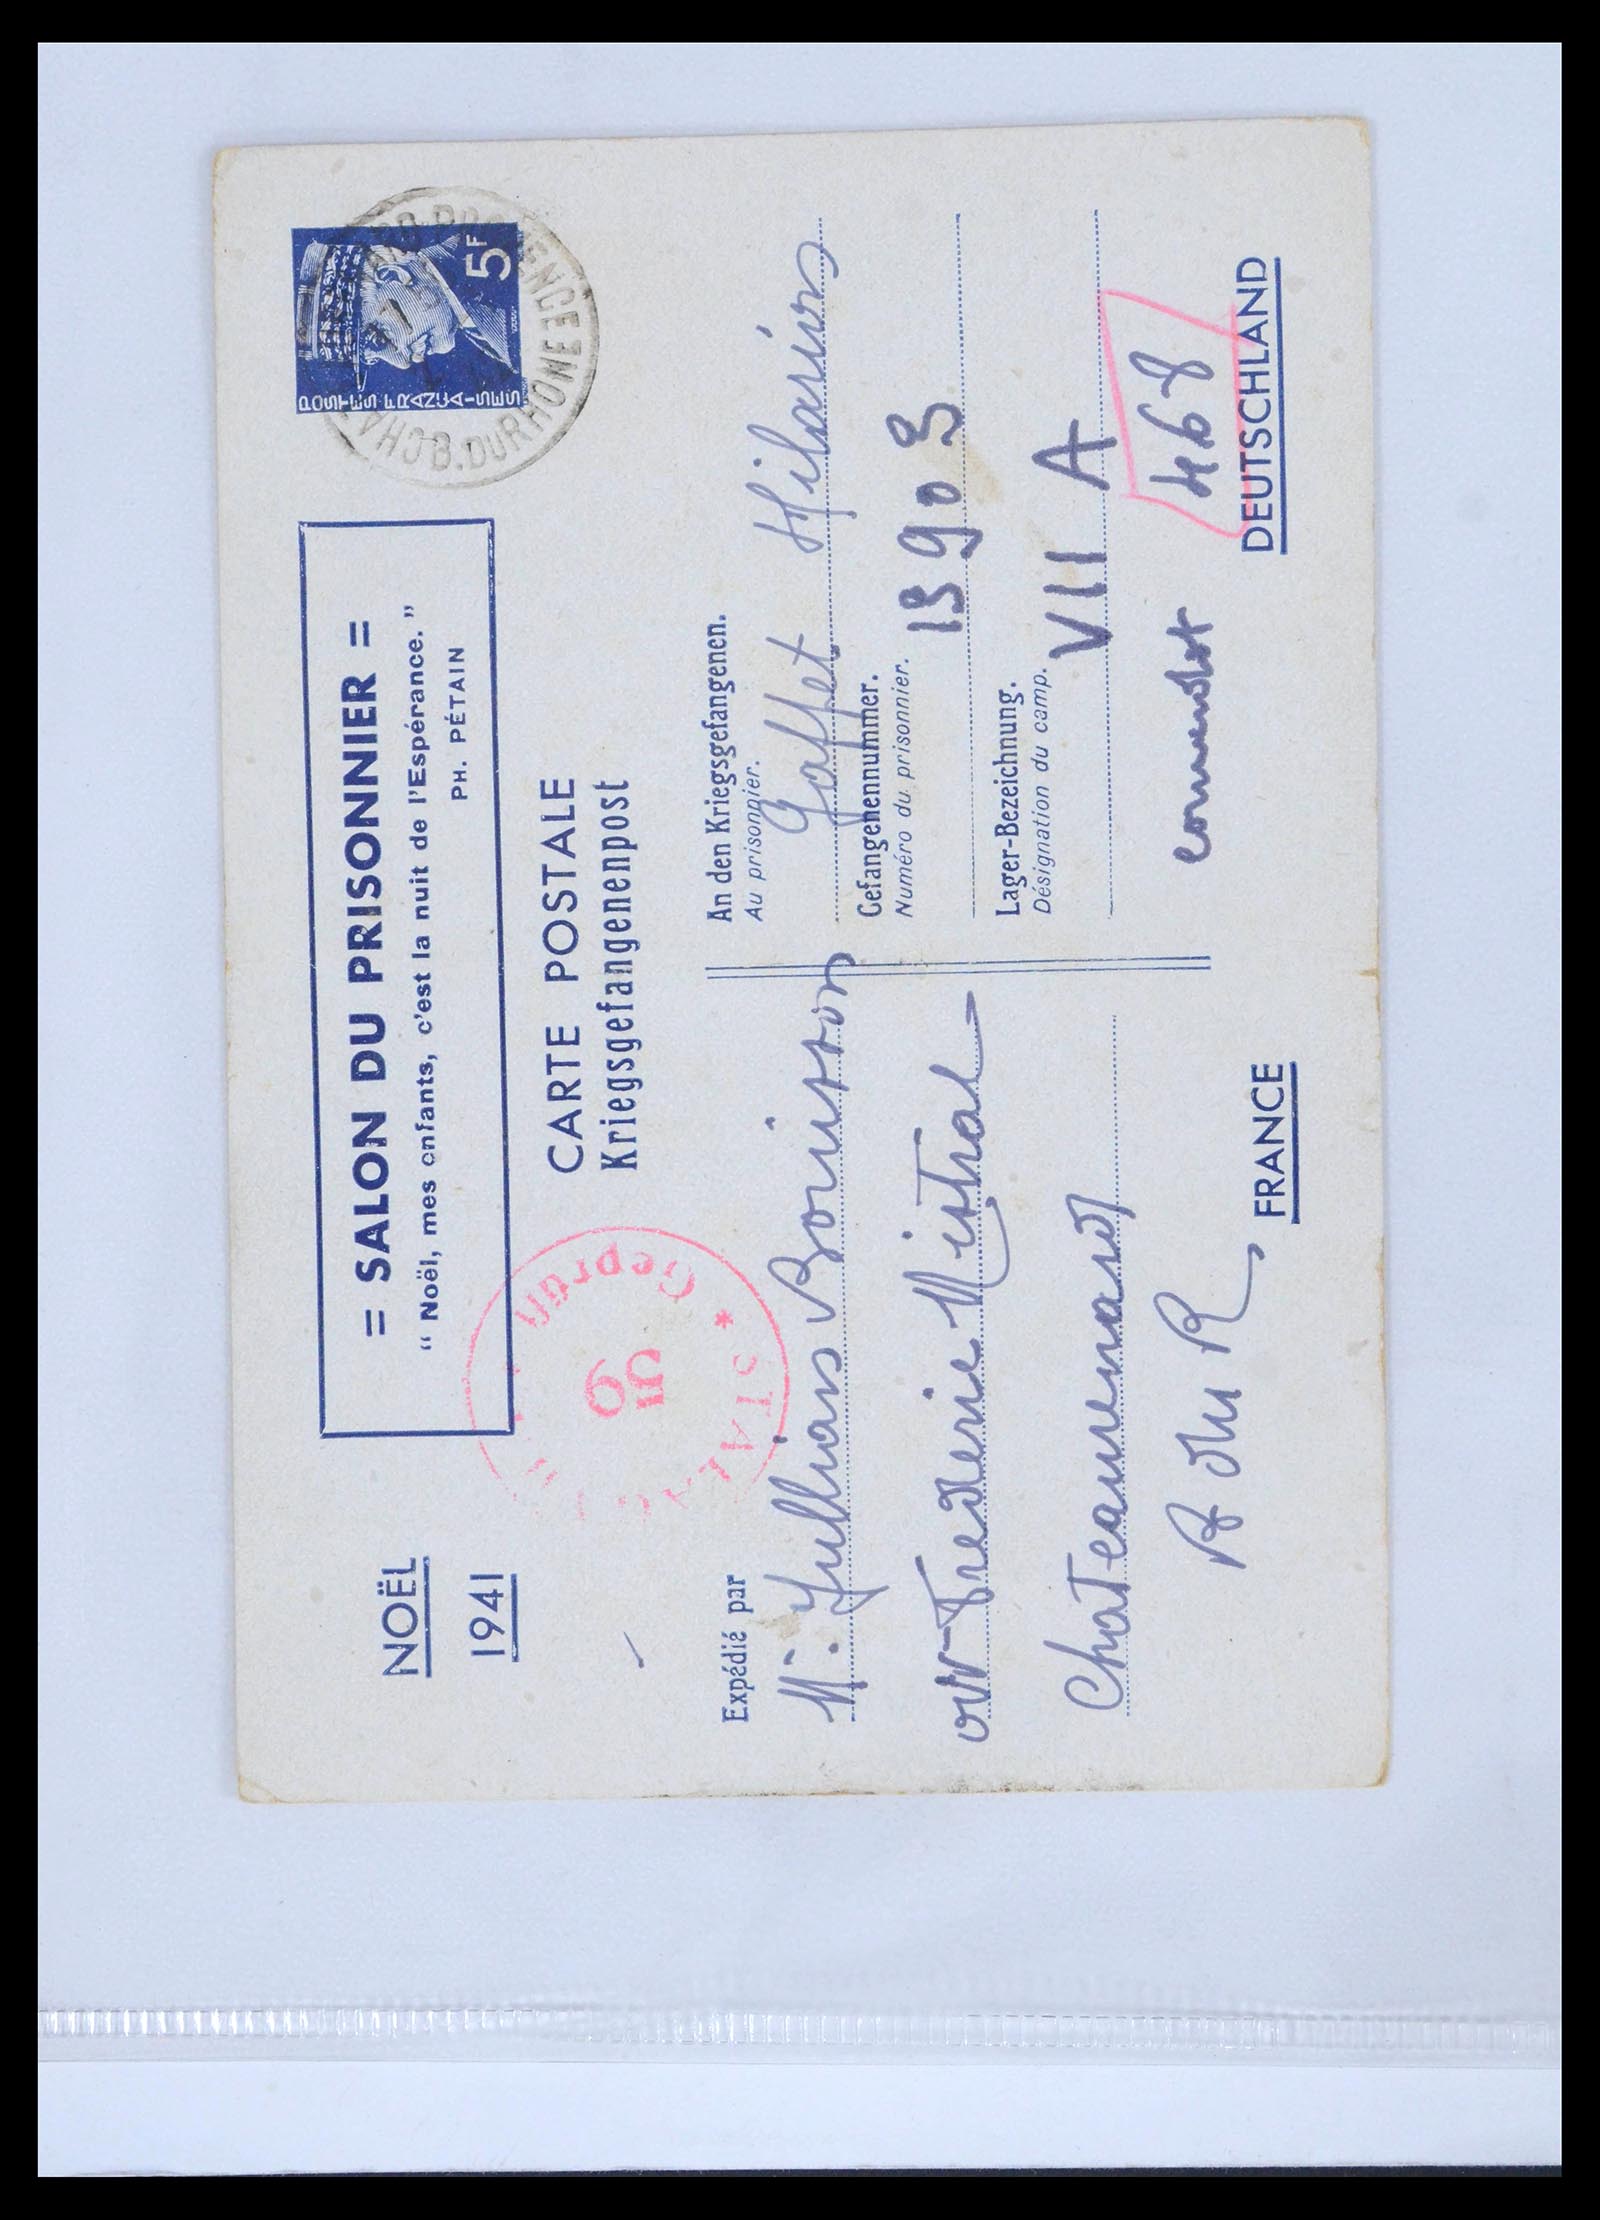 NOËL
1941
= SALON DU PRISONNIER =
“ Noël, mes enfants, c'est la nuit de l'Espérance. ”
PH. PÉTAIN
POSTES FRANÇAISES
5F
B. DU RHONE
CARTE POSTALE
Kriegsgefangenenpost
Geprüft
STALAG
Expédié par
M. Jullian Bouisson
av- Frederic Mistral
Chateaurenard
B du R
FRANCE
An den Kriegsgefangenen.
Au prisonnier.
Gaffet Hilarion
Gefangenennummer.
Numéro du prisonnier.
13903
Lager-Bezeichnung.
Désignation du camp.
VII A
468
DEUTSCHLAND